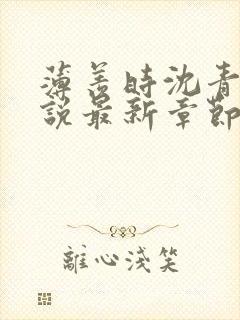 薄善時沈青
說最新章節
離心淺笑